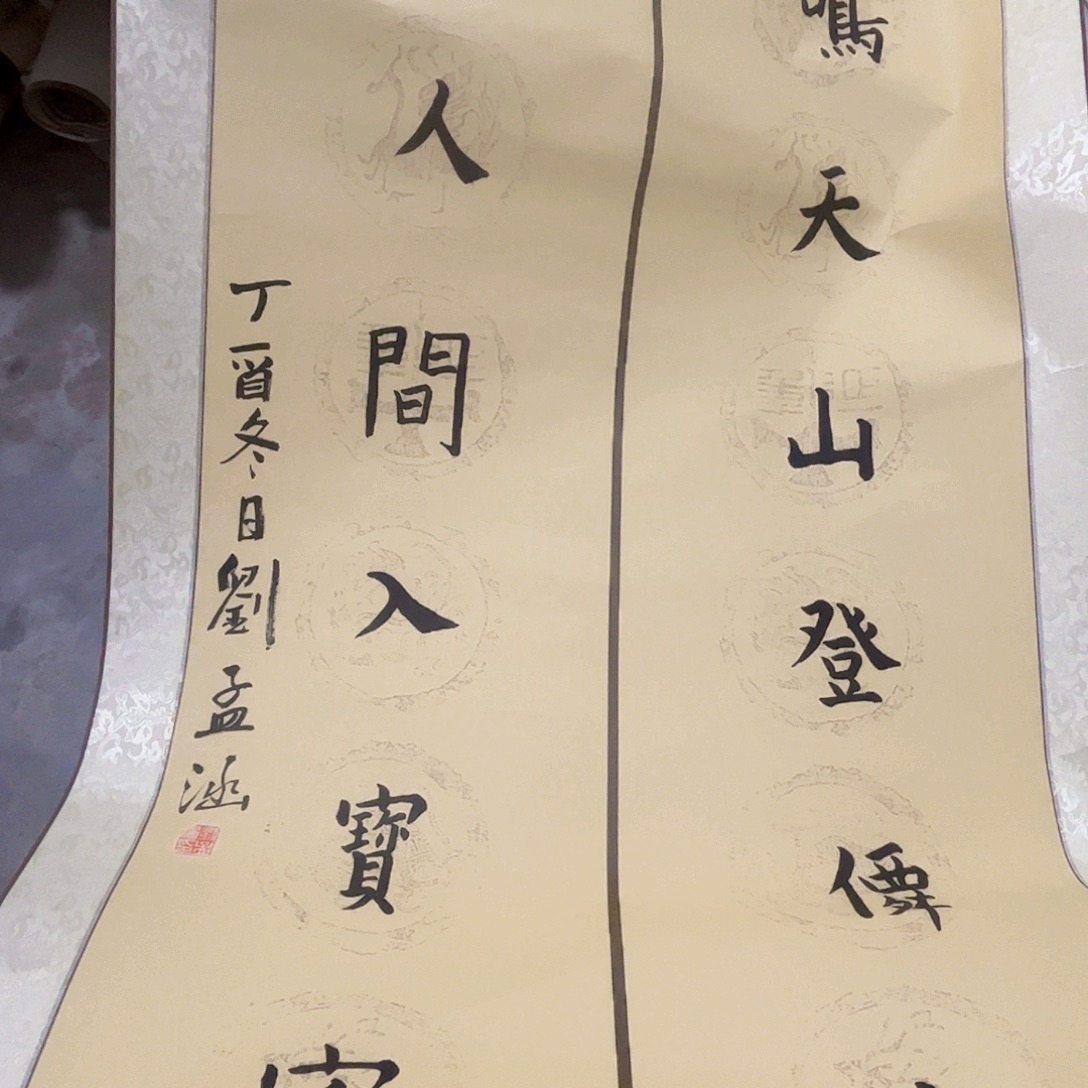 鳴天山登僊
人間入寶
丁酉冬日劉孟涵